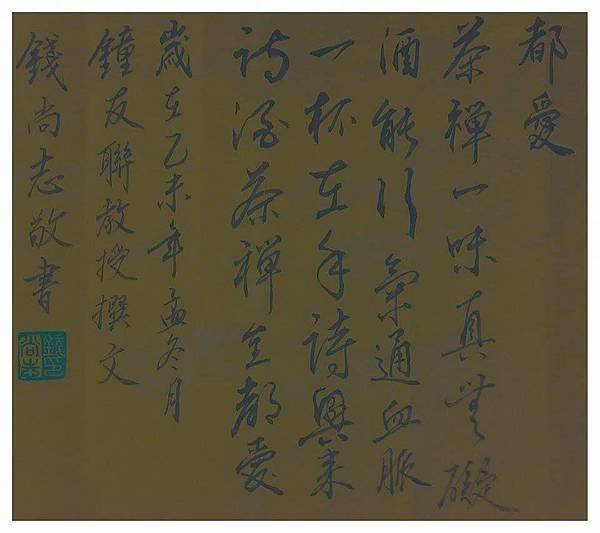 都愛
茶禪一味真無礙
酒能行氣通血脈
一杯在手詩興來
詩酒茶禪全都愛
歲在乙未年孟冬月
鐘友聯教授撰文
錢尚志敬書